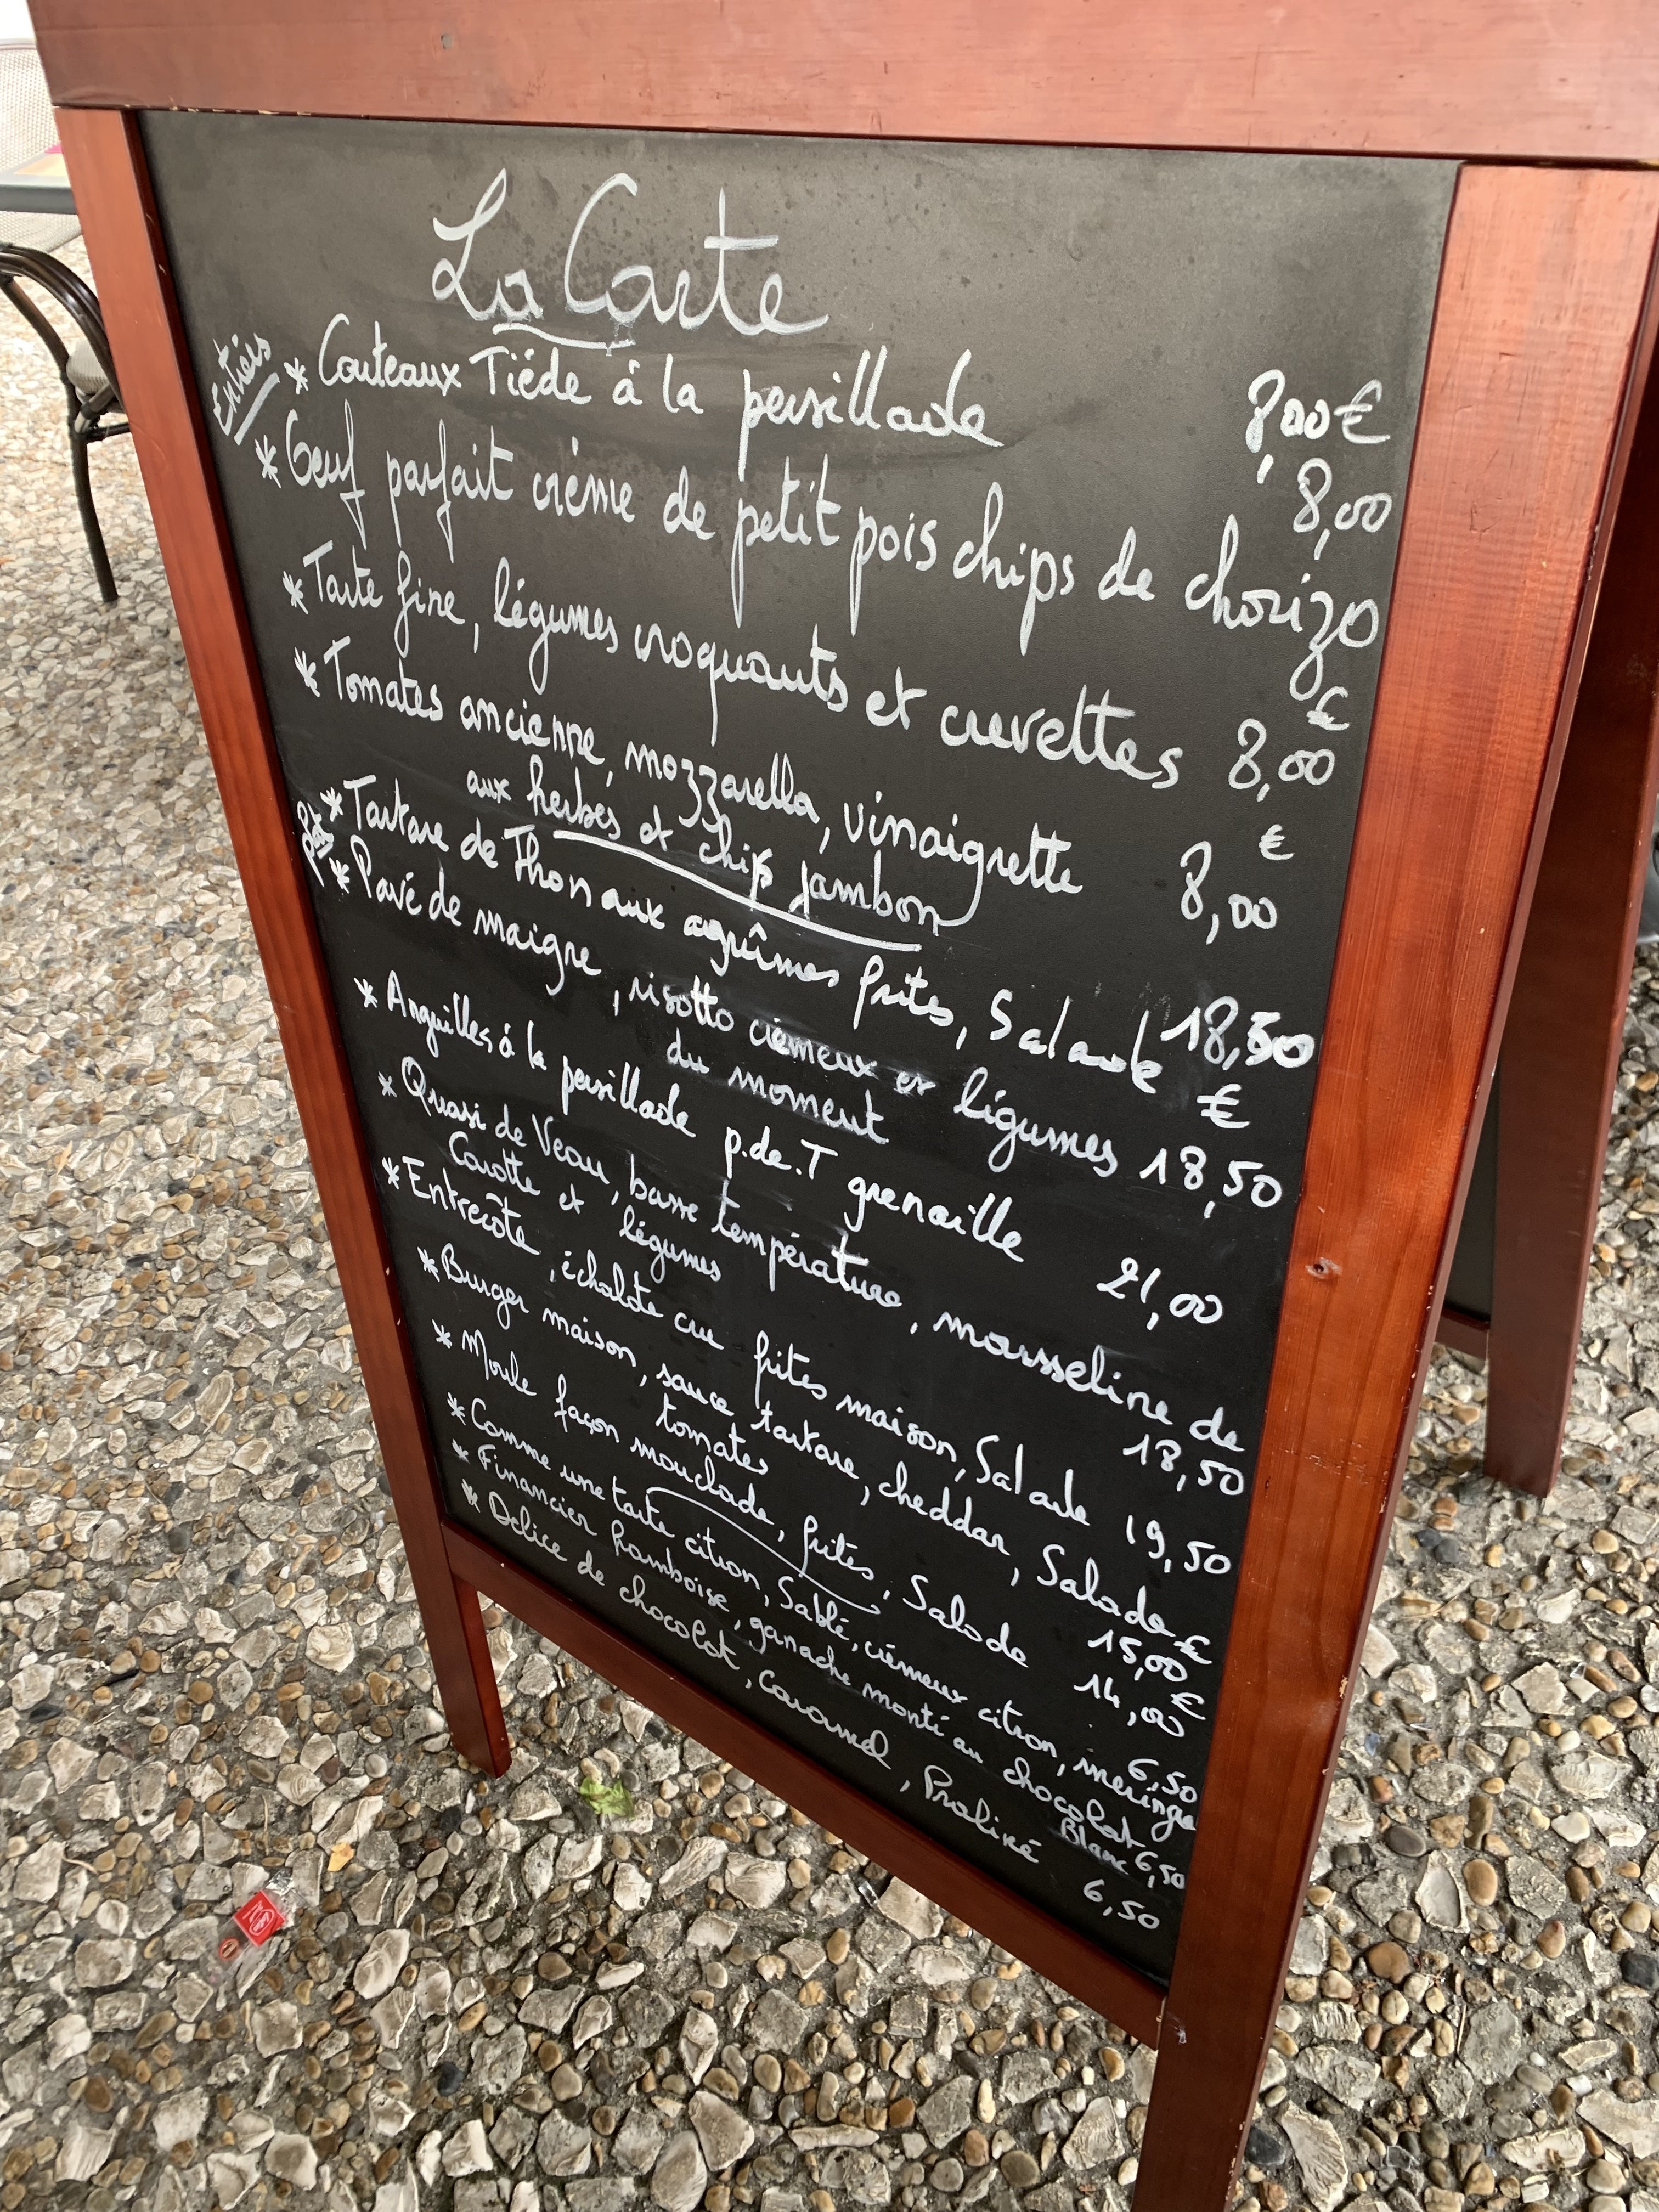 La Carte
Entrées
* Couteaux Tiéde á la persillade 8,00€
* Oeuf parfait créme de petit pois chips de chorizo 8,00
€
* Tarte fine, légumes croquants et crevettes 8,00
* Tomates ancienne, mozzarella, vinaigrette 8,00 €
aux herbes et chips jambon
* Tartare de Thon aux agrûmes frites, Salade 18,50
€
* Pavé de maigre, risotto crémeux et légumes 18,50
du moment
* Anguilles á la persillade p.de.T grenaille 21,00
* Quasi de Veau, basse température, mousseline de
Carotte et légumes 18,50
* Entrecôte, échalote crue frites maison, Salade 19,50
* Burger maison, sauce tartare, cheddar, Salade
tomates 15,00 €
* Moule façon mouclade, frites, Salade 14,00 €
* Comme une tarte citron, Sablé, crémeux citron, meringue 6,50
* Financier framboise, ganache monté au chocolat
Blanc 6,50
* Délice de chocolat, Caramel, Praliné 6,50